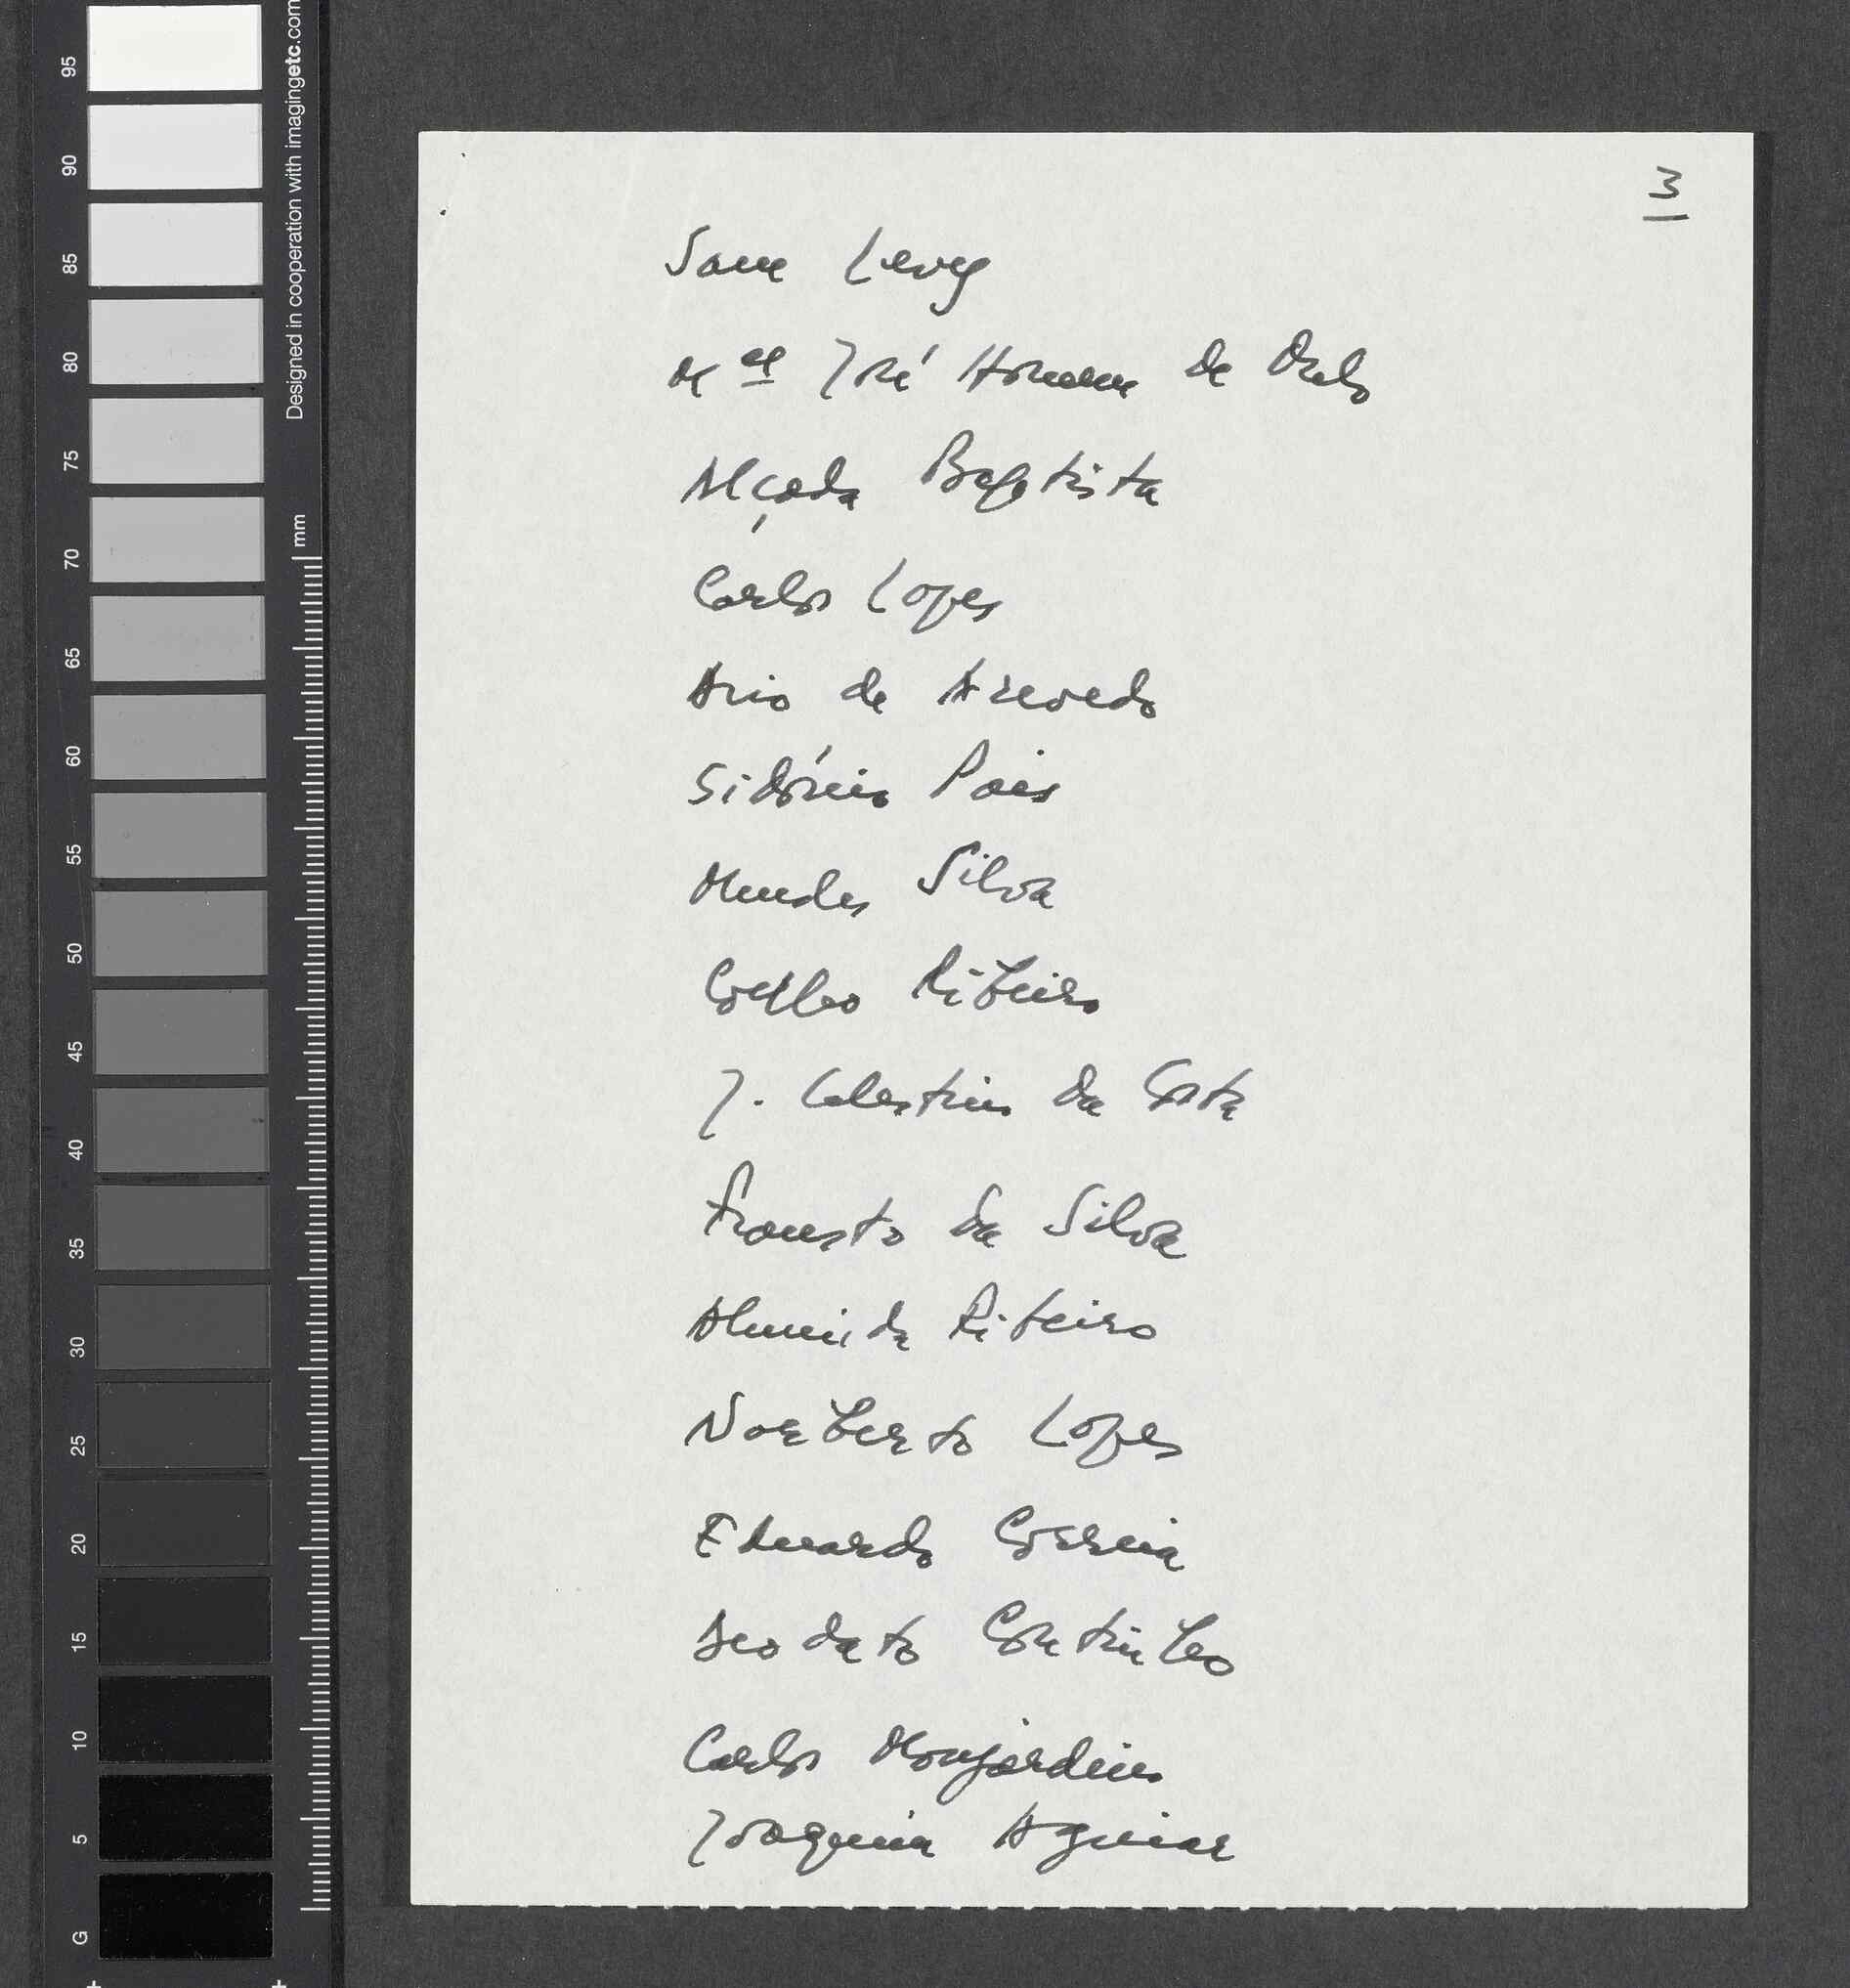 3
Sam Levy
Mel José Homem de Melo
Alçada Baptista
Carlos Lopes
Ario de Azevedo
Sidónio Pais
Mendes Silva
Coelho Ribeiro
J. Celestino da Costa
Fraústo da Silva
Almeida Ribeiro
Norberto Lopes
Eduardo Correia
Deodato Coutinho
Carlos Monjardino
Joaquim Aguiar
Designed in cooperation with imagingetc.com
mm
95
90
85
80
75
70
65
60
55
50
45
40
35
30
25
20
15
10
5
G